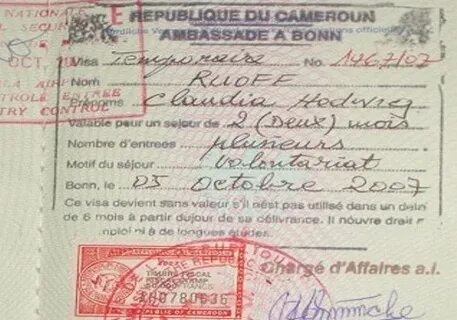 E REPUBLIQUE DU CAMEROUN
AMBASSADE A BONN
Visa Temporaire No. 1467/07
Nom RUOFF
Prénoms Claudia
Valable pour un séjour de 2 (Deux) mois
Nombre d'entrees plusieurs
Motif du séjour Volontariat
Bonn, le 05 Octobre 2007
Ce visa devient sans valeur s'il n'est pas utilisé dans un délai
de 6 mois à partir du jour de sa délivrance. Il n'ouvre droit
emploi ni à de longues études.
Chargé d'Affaires a.i.
NATIONALE
OCT.
AIR
CONTROLE ENTREE
ENTRY CONTROL
TIMBRE FISCAL
FISCAL STAMP
REPUBLIC OF CAMEROON